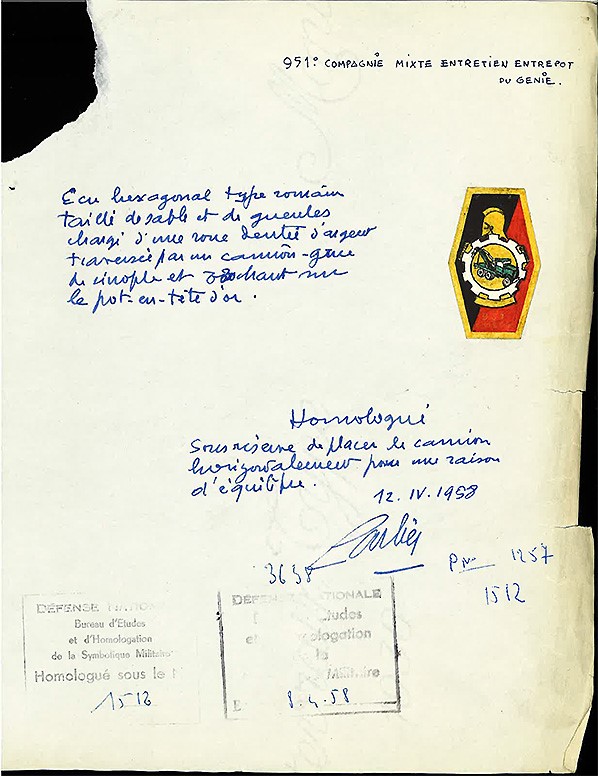 951° COMPAGNIE MIXTE ENTRETIEN ENTREPOT
DU GENIE.
Ecu hexagonal type romain
taillé de sable et de gueules
chargé d'une roue dentée d'argent
traversée par un camion-grue
de sinople et brochant sur
le pot-en-tête d'or.
Homologué
sous réserve de placer le camion
horizontalement pour une raison
d'équilibre.
12.IV.1958
3638
1257
1512
DÉFENSE
Bureau d'Etudes
et d'Homologation
de la Symbolique Militaire
Homologué sous le N
1512
DEFENSE NATIONALE
Etudes
et Homologation
Militaire
E 8.4.58